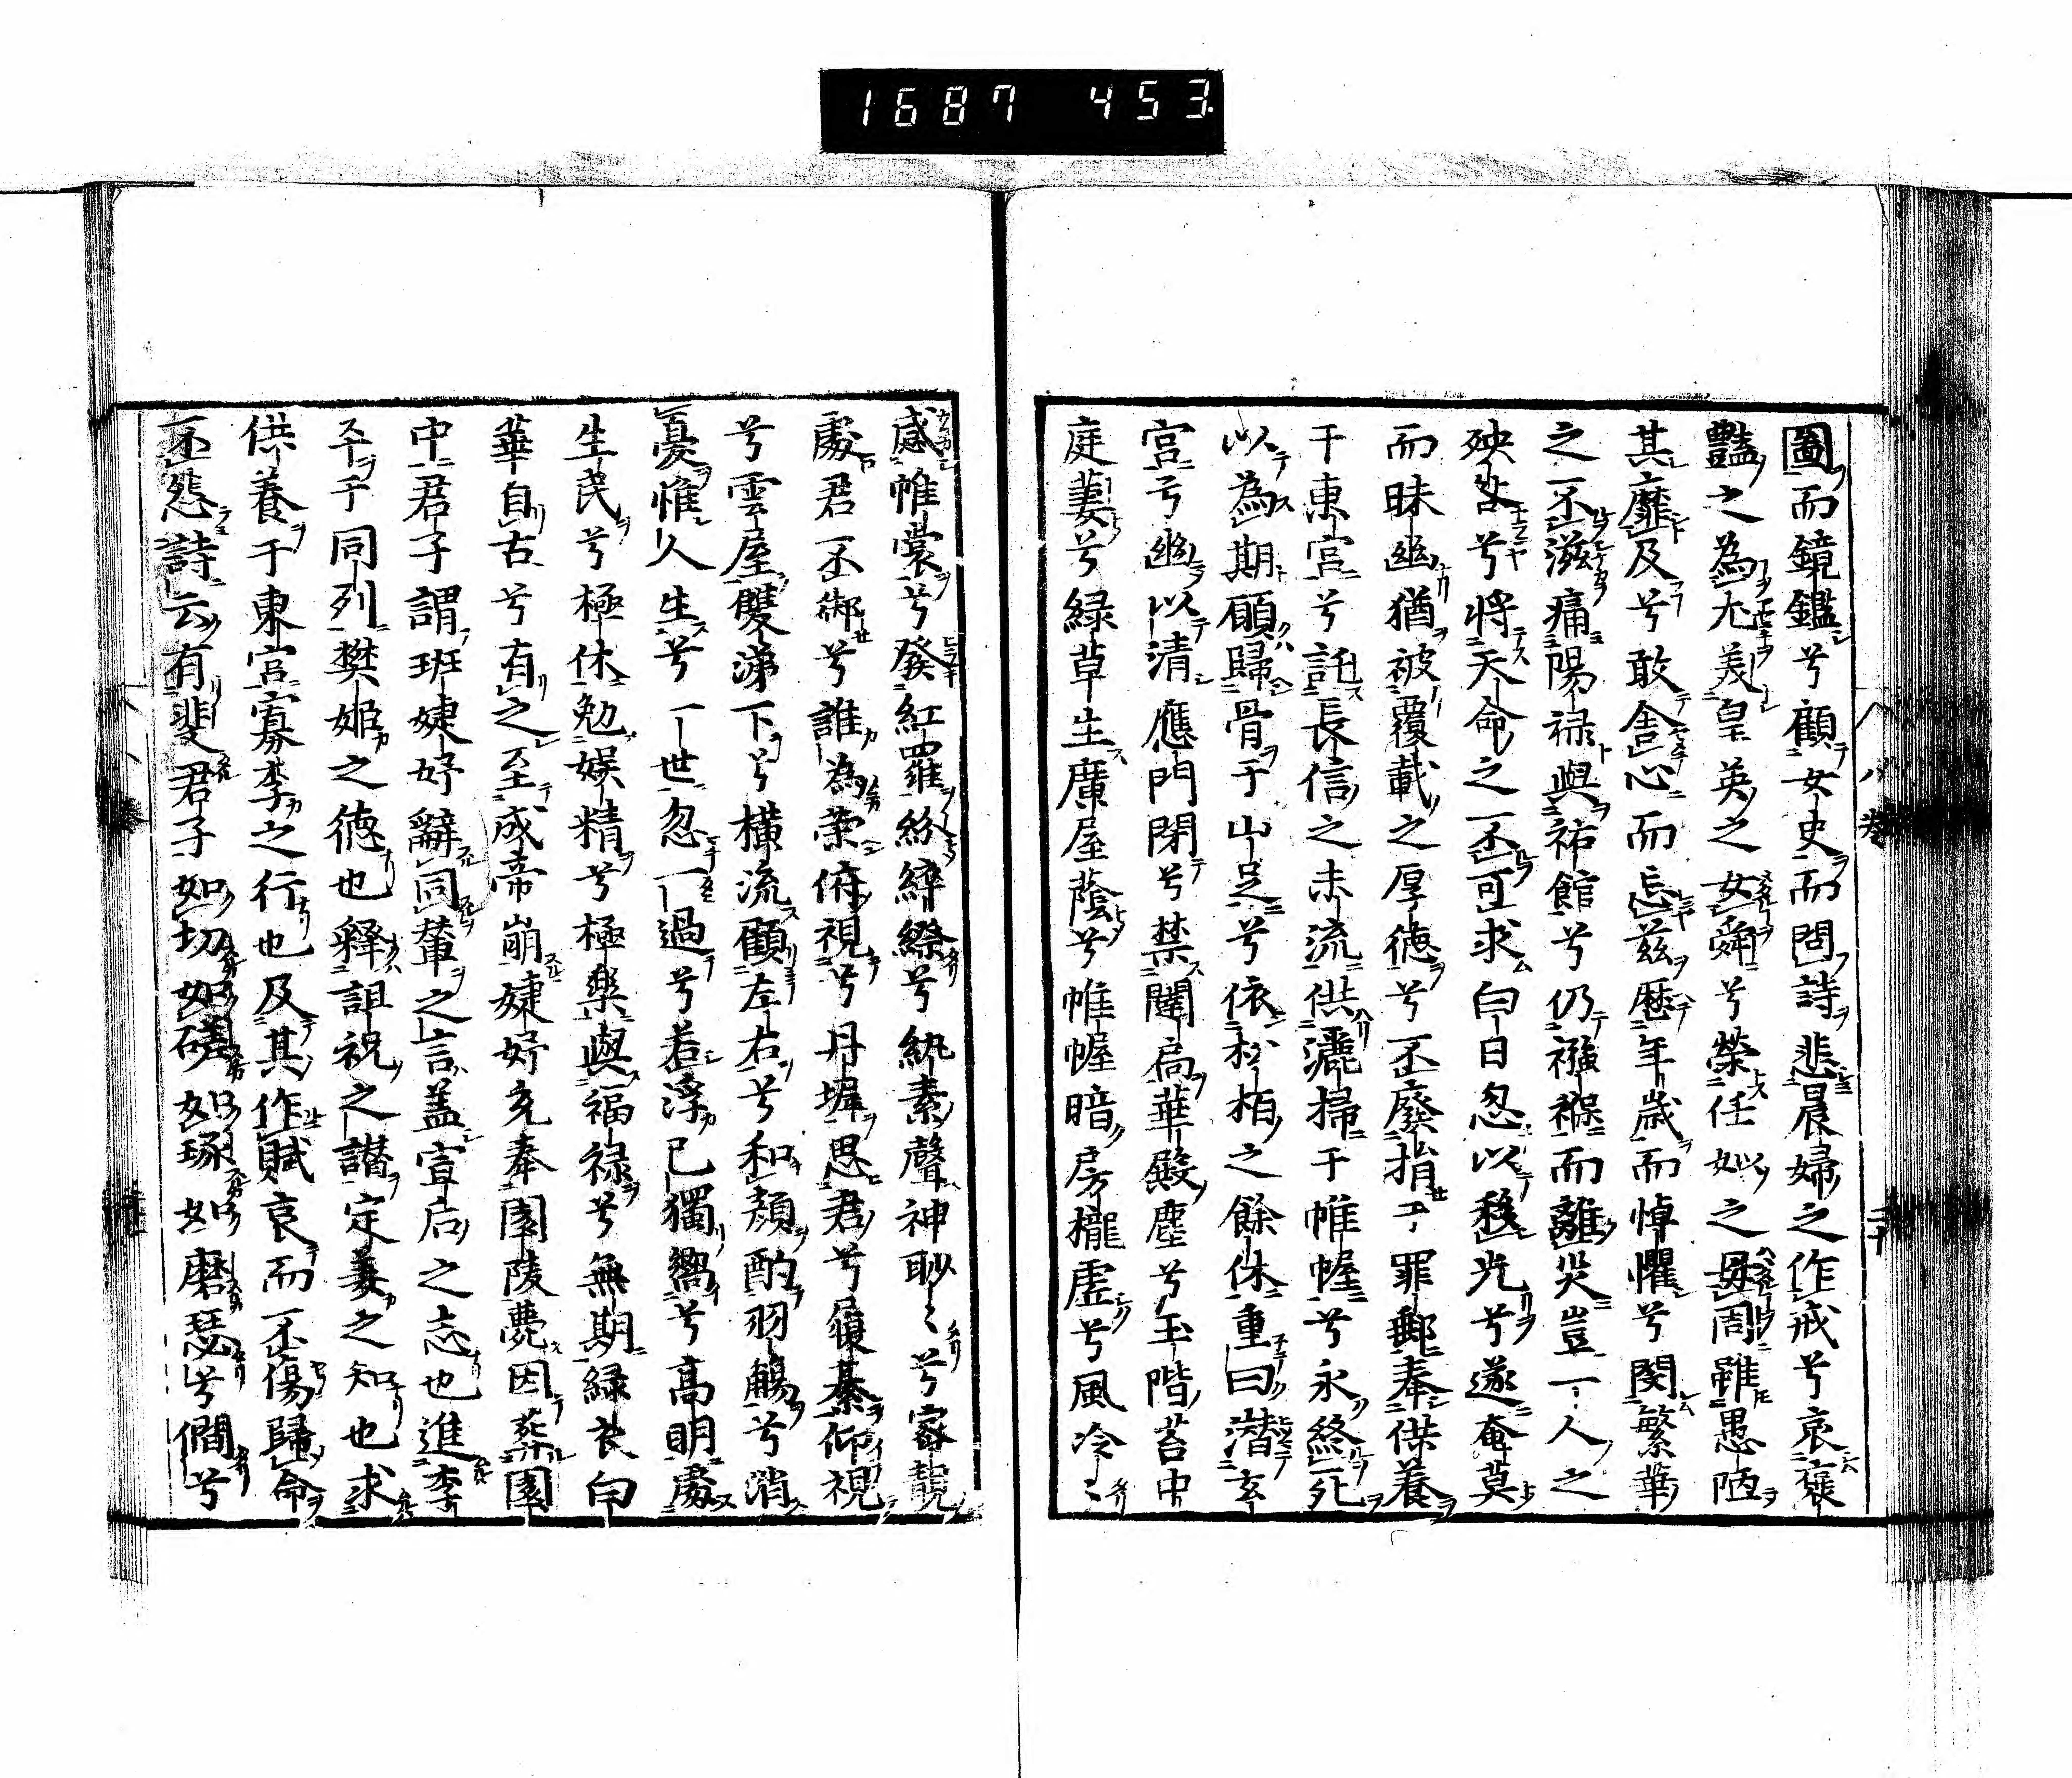 1687 453
圖而鏡鑑兮顧女史而問詩悲晨婦之作戒兮哀褒
豔之為尤美皇英之女舜兮榮任姒之母周雖愚陋
其靡及兮敢舍心而忘茲歷年歲而悼懼兮閔繁華
之不滋痛陽祿與祏館兮仍襁褓而離災豈一人之
殃咎兮將天命之不可求白日忽以移光兮遂奄莫
而昧幽猶被覆載之厚德兮不廢捐于罪郵奉供養
于東宮兮託長信之末流供灑掃于帷幄兮永終死
以為期願歸骨于山足兮依松栢之餘休重曰潛玄
宮兮幽以清應門閉兮禁闥扃華殿塵兮玉階苔中
庭萋兮緑草生廣屋蔭兮帷幄暗房櫳虛兮風冷〻
感帷裳兮發紅羅紛綷縩兮紈素聲神眇〻兮密靚
處君不御兮誰為榮俯視兮丹墀思君兮履綦仰視
兮雲屋雙涕下兮橫流顧左右兮和顏酌羽觴兮消
憂惟人生兮一世忽一過兮若浮已獨嚮兮高明處
生民兮極休勉娛精兮極樂與福祿兮無期緑衣白
華自古兮有之至成帝崩婕妤充奉園陵薨因葬園
中君子謂班婕妤辭同輦之言蓋宣后之志也進李
平于同列樊姬之德也釋詛祝之譖定姜之知也求
供養于東宮寡李之行也及其作賦哀而不傷歸命
不怨詩云有斐君子如切如磋如琢如磨瑟兮僩兮
八卷
二十